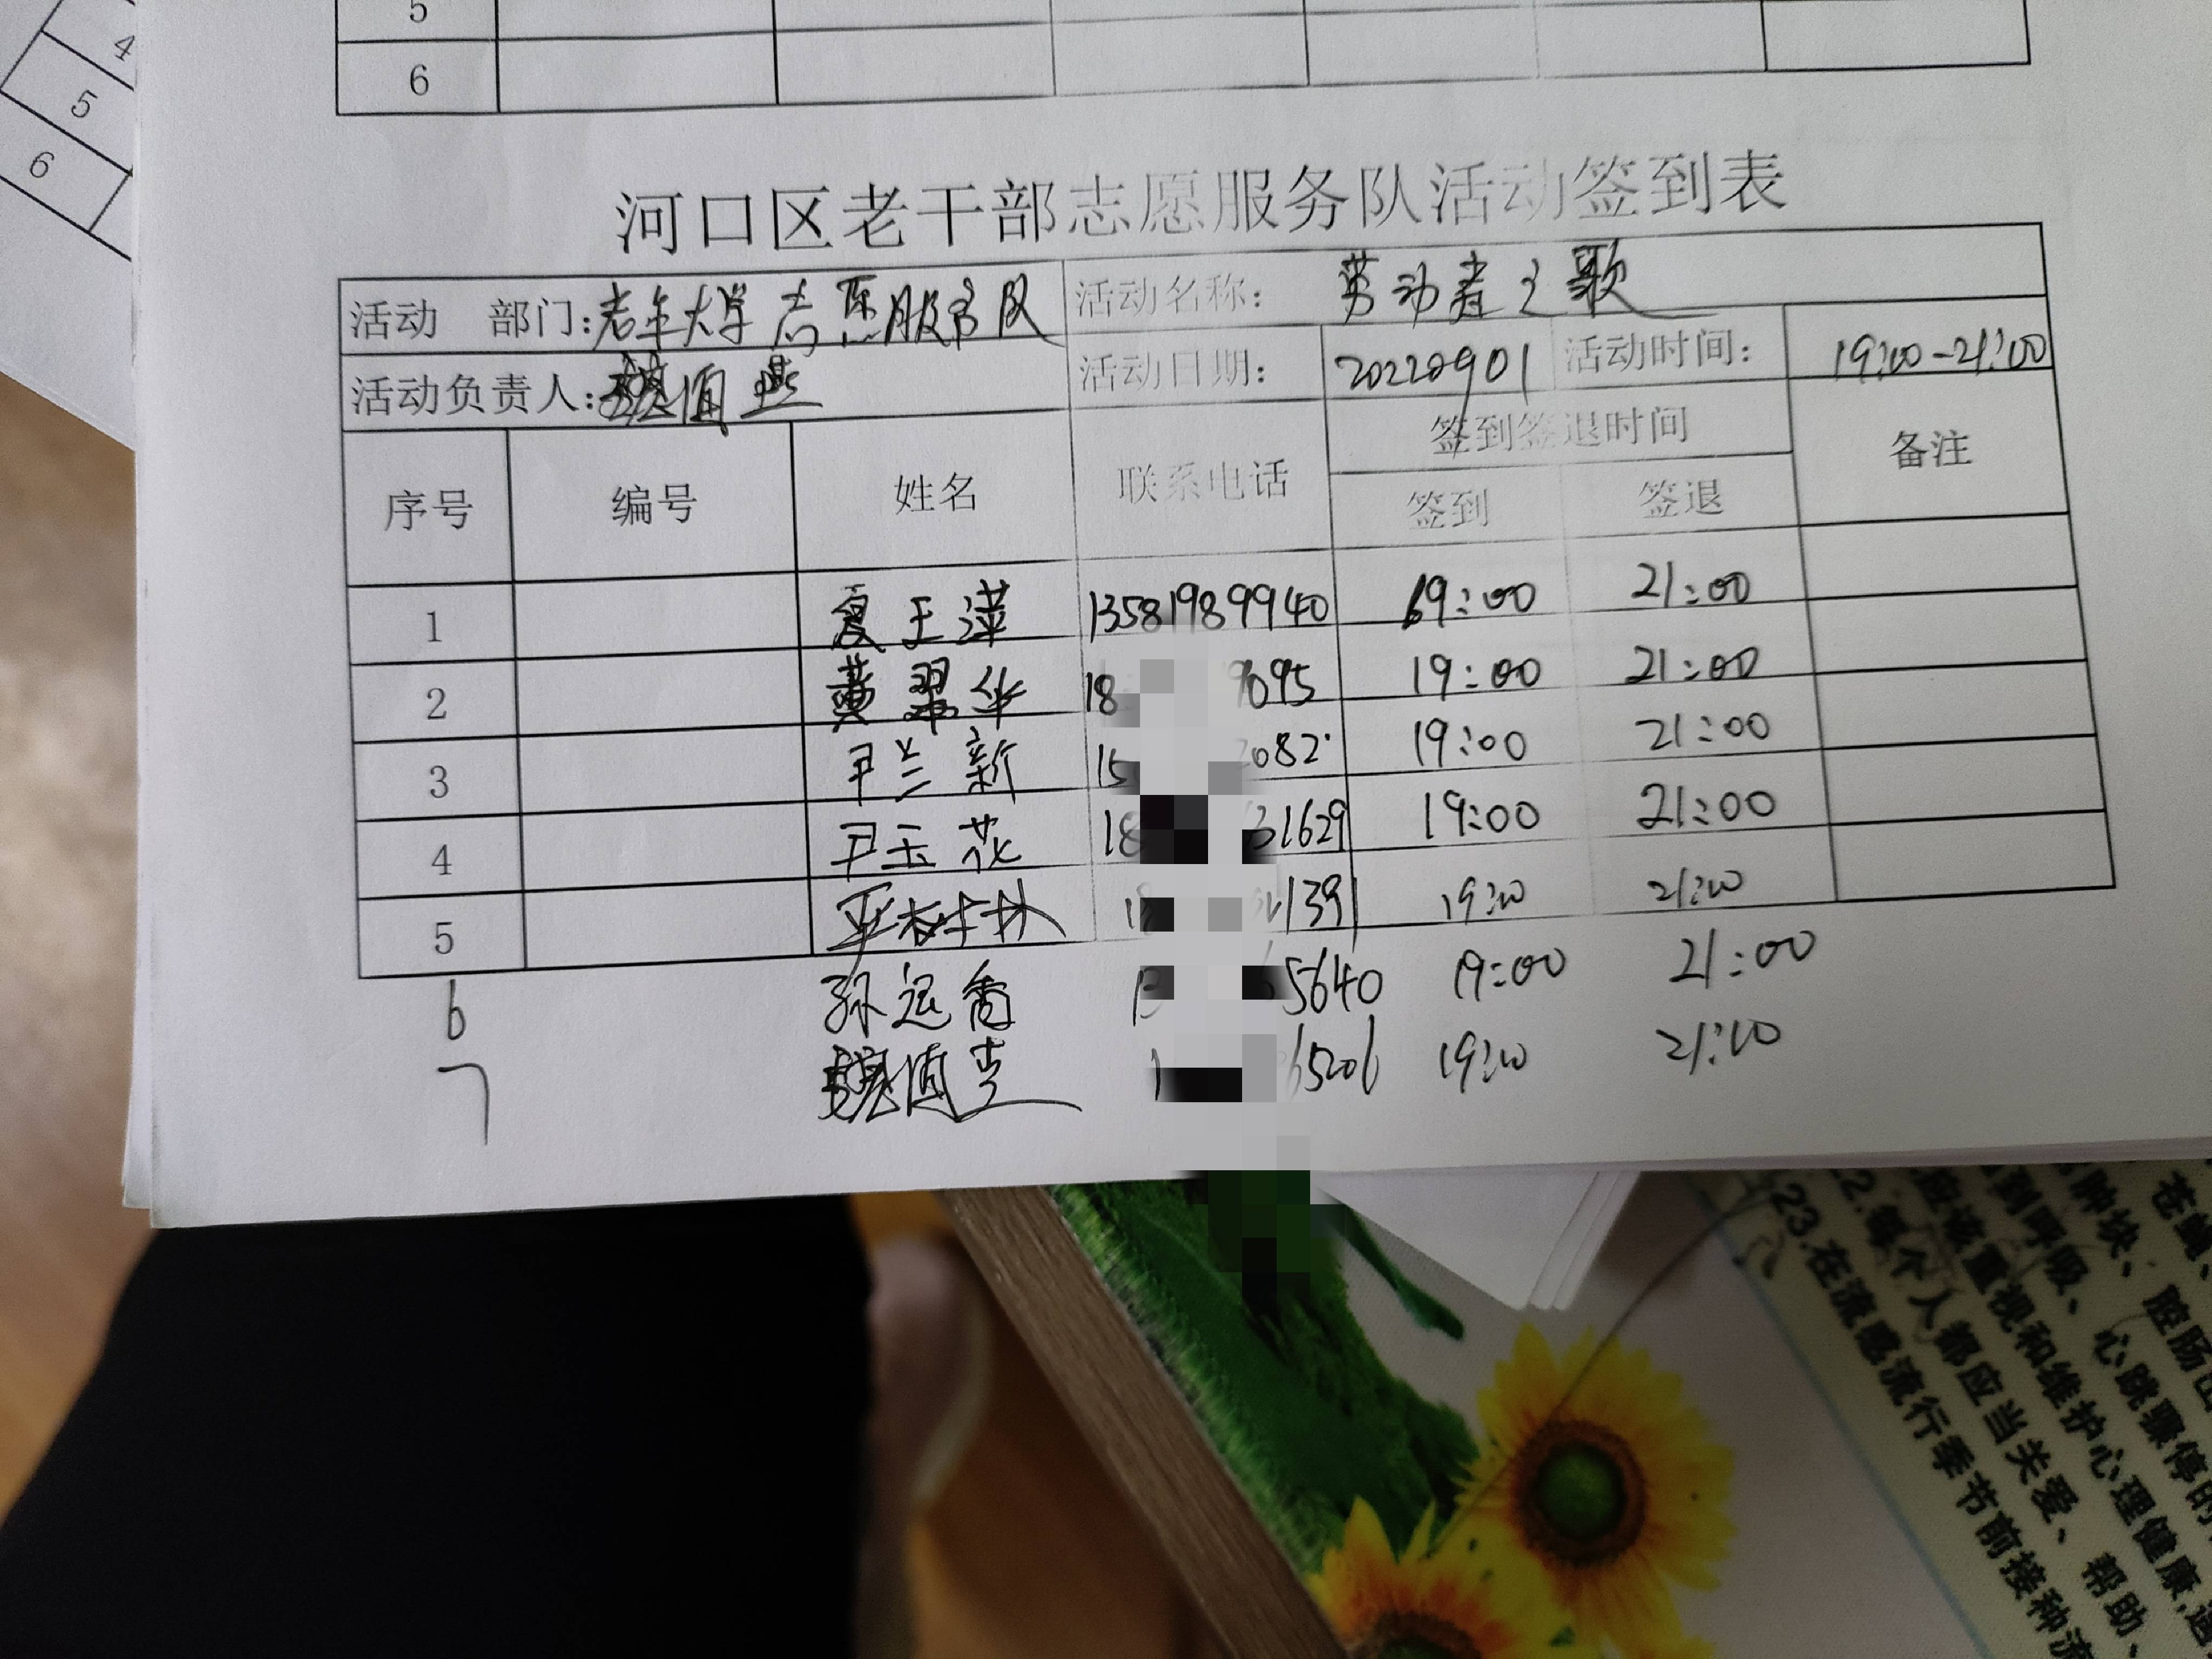 4
5
6
5
6
河口区老干部志愿服务队活动签到表
活动 部门: 老年大学志愿服务队 活动名称: 劳动者之歌
活动负责人: 活动日期: 20220901 活动时间: 19:00-21:00
序号 编号 姓名 联系电话 签到签退时间 备注
签到 签退
1 夏王萍 13581989940 19:00 21:00
2 黄翠华 18 9095 19:00 21:00
3 尹兰新 15 2082 19:00 21:00
4 尹玉花 18 31629 19:00 21:00
5 1391 19:00 21:00
6 孙远香 13 5640 19:00 21:00
7 65206 19:00 21:00
苍蝇、
肿块、腔肠出
到呼吸、心跳骤停的
应该重视和维护心理健康,
22.每个人都应当关爱、帮助、
23.在流感流行季节前接种流